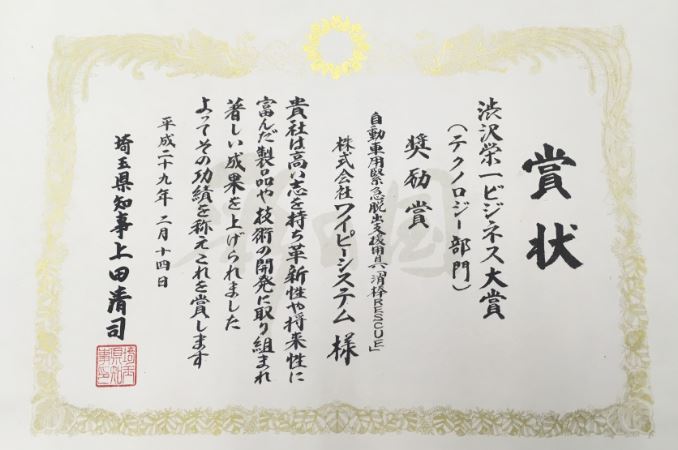 賞状
渋沢栄一ビジネス大賞
(テクノロジー部門)
奨励賞
自動車用緊急脱出支援用具「消棒RESCUE」
株式会社ワイピーシステム 様
貴社は高い志を持ち革新性や将来性に
富んだ製品や技術の開発に取り組まれ
著しい成果を上げられました
よってその功績を称えこれを賞します
平成二十九年 二月十四日
埼玉県知事 上田清司